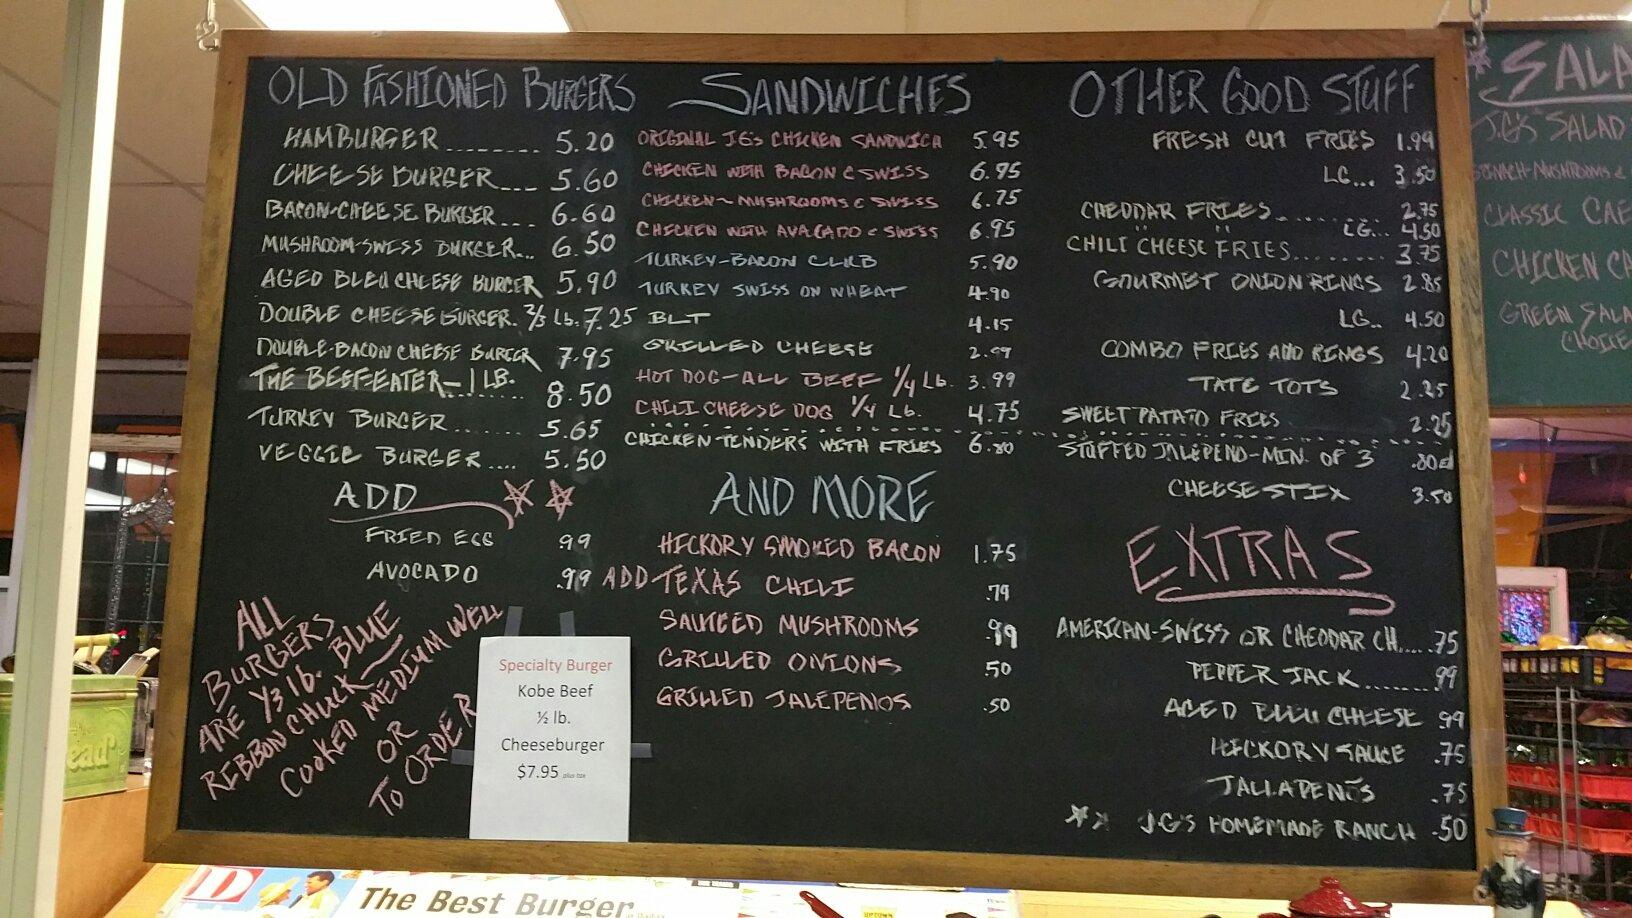 OLD FASHIONED BURGERS
HAMBURGER......... 5.20
CHEESE BURGER... 5.60
BACON-CHEESE BURGER... 6.60
MUSHROOM-SWISS BURGER... 6.50
AGED BLEU CHEESE BURGER 5.90
DOUBLE CHEESE BURGER. 2/3 Lb. 7.25
DOUBLE-BACON CHEESE BURGER 7.95
THE BEEF-EATER-1 LB. ........ 8.50
TURKEY BURGER....... 5.65
VEGGIE BURGER.... 5.50
ADD
FRIED EGG .99
AVOCADO .99
ALL
BURGERS
ARE 1/3 lb. BLUE
RIBBON CHUCK
COOKED MEDIUM WELL
OR
TO ORDER
Specialty Burger
Kobe Beef
½ lb.
Cheeseburger
$7.95 plus tax
SANDWICHES
ORIGINAL J.G's CHICKEN SANDWICH 5.95
CHICKEN WITH BACON & SWISS 6.95
CHICKEN~MUSHROOMS & SWISS 6.75
CHICKEN WITH AVACADO & SWISS 6.95
TURKEY-BACON CLUB 5.90
TURKEY SWISS ON WHEAT 4.90
BLT 4.15
GRILLED CHEESE 2.99
HOT DOG-ALL BEEF 1/4 Lb. 3.99
CHILI CHEESE DOG 1/4 LB. 4.75
CHICKEN-TENDERS WITH FRIES 6.80
AND MORE
HICKORY SMOKED BACON 1.75
ADD TEXAS CHILI .79
SAUTEED MUSHROOMS .99
GRILLED ONIONS .50
GRILLED JALEPENOS .50
OTHER GOOD STUFF
FRESH CUT FRIES 1.99
LG... 3.50
CHEDDAR FRIES.......... 2.75
" " LG... 4.50
CHILI CHEESE FRIES........ 3.75
GOURMET ONION RINGS 2.85
LG.. 4.50
COMBO FRIES AND RINGS 4.20
TATE TOTS 2.25
SWEET PATATO FRIES 2.25
STUFFED JALEPENO-MIN. OF 3 .80
CHEESE STIX 3.50
EXTRAS
AMERICAN-SWISS OR CHEDDAR CH..... .75
PEPPER JACK........ .99
AGED BLEU CHEESE .99
HICKORY SAUCE .75
JALLAPENOS .75
J.G'S HOMEMADE RANCH .50
SALA
J.G'S SALAD
SPINACH-MUSHROOMS &
CLASSIC CAE
CHICKEN CA
GREEN SALA
CHOICE
D
The Best Burger
UPTOWN